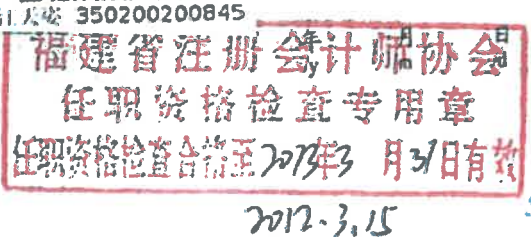 350200200845
福建省注册会计师协会
年 月 日
y m d
任职资格检查专用章
任职资格检查合格至2013年3月31日有效
2012.3.15